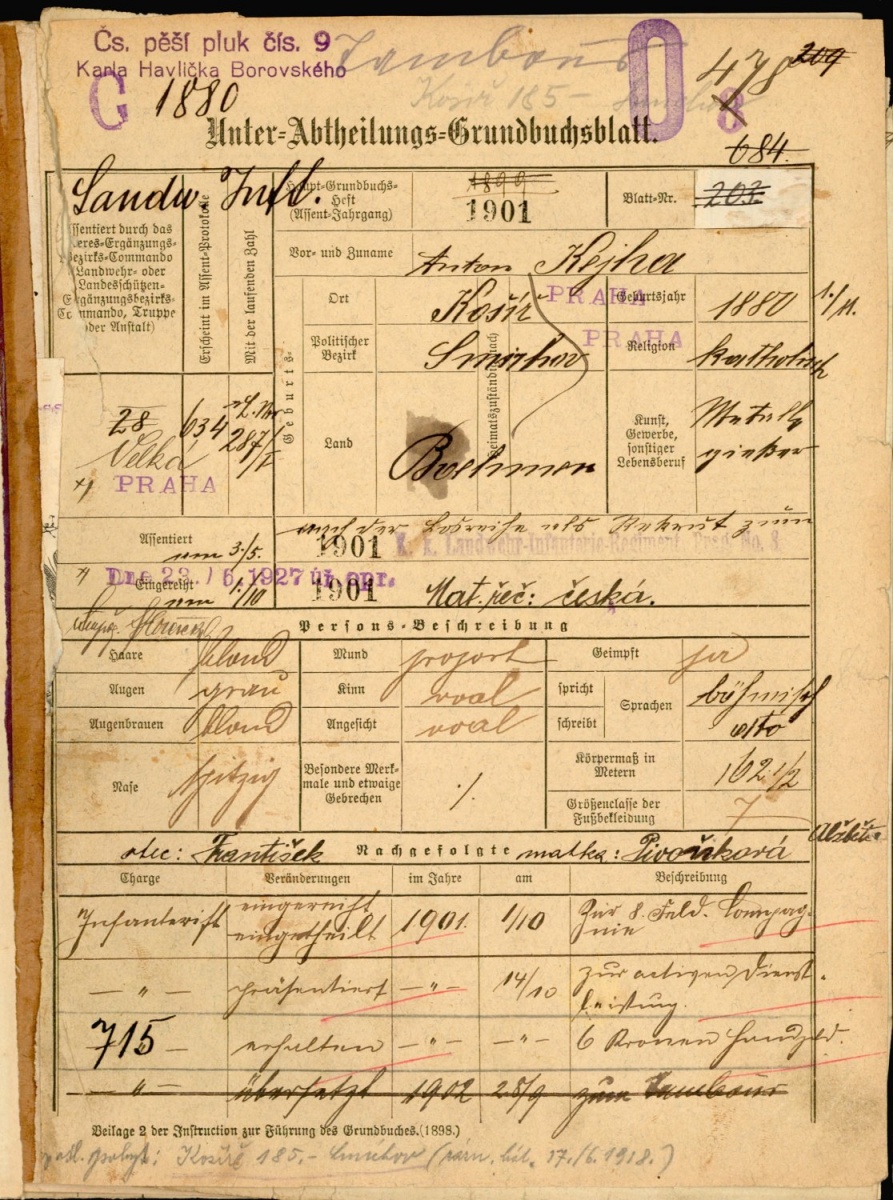 Čs. pěší pluk čís. 9
Karla Havlíčka Borovského
Tambour
478 209
C 1880
Košíř 185 -
0 8
Unter-Abtheilungs-Grundbuchsblatt.
684.
Landw. Inft.
Haupt-Grundbuchs-
Heft
(Assent-Jahrgang)
1899
1901
Blatt-Nr.
203.
Assentiert durch das
Heeres-Ergänzungs-
Bezirks-Commando
Landwehr- oder
Landesschützen-
Ergänzungsbezirks-
Commando, Truppe
(oder Anstalt)
Erscheint im Assent-Protokolle
Mit der laufenden Zahl
Vor- und Zuname
Anton Kejha
Geburts-
Ort
Košíř
PRAHA
Geburtsjahr
1880 1./11.
Politischer
Bezirk
Smichov
Heimatszuständig nach
PRAHA
Religion
katholisch
28
Velká
PRAHA
634
287/I
Land
Boehmen
Kunst,
Gewerbe,
sonstiger
Lebensberuf
Metall
gießer
Assentiert
am 3/5.
1901
nach der Losreihe als Rekrut zum
k. k. Landwehr-Infanterie-Regiment Prag No. 8
Dne 23./6.1927
Eingereiht
am 1/10
1901
Mat. řeč: česká.
Persons-Beschreibung
Haare
blond
Mund
proport
Geimpft
ja
Augen
grau
Kinn
oval
spricht
Sprachen
böhmisch
Augenbrauen
blond
Angesicht
oval
schreibt
dtto
Nase
spitzig
Besondere Merk-
male und etwaige
Gebrechen
./.
Körpermaß in
Metern
162 1/2
Größenclasse der
Fußbekleidung
7
otec: František
Nachgefolgte
matka: Pivoňková
Alžběta
Charge
Veränderungen
im Jahre
am
Beschreibung
Infanterist
eingereiht
eingetheilt
1901.
1/10
Zur 8. Feld. Compag-
nie
— „ —
präsentiert
— „ —
14/10
zur activen Dienst-
leistung.
715
erhalten
— „ —
— „ —
6 Kronen Handgeld.
— „ —
übersetzt
1902
28/9
zum Tambour
Beilage 2 der Instruction zur Führung des Grundbuches. (1898.)
pobyt: Košíř 185.- Smíchov (rám. běl. 17./6. 1918.)